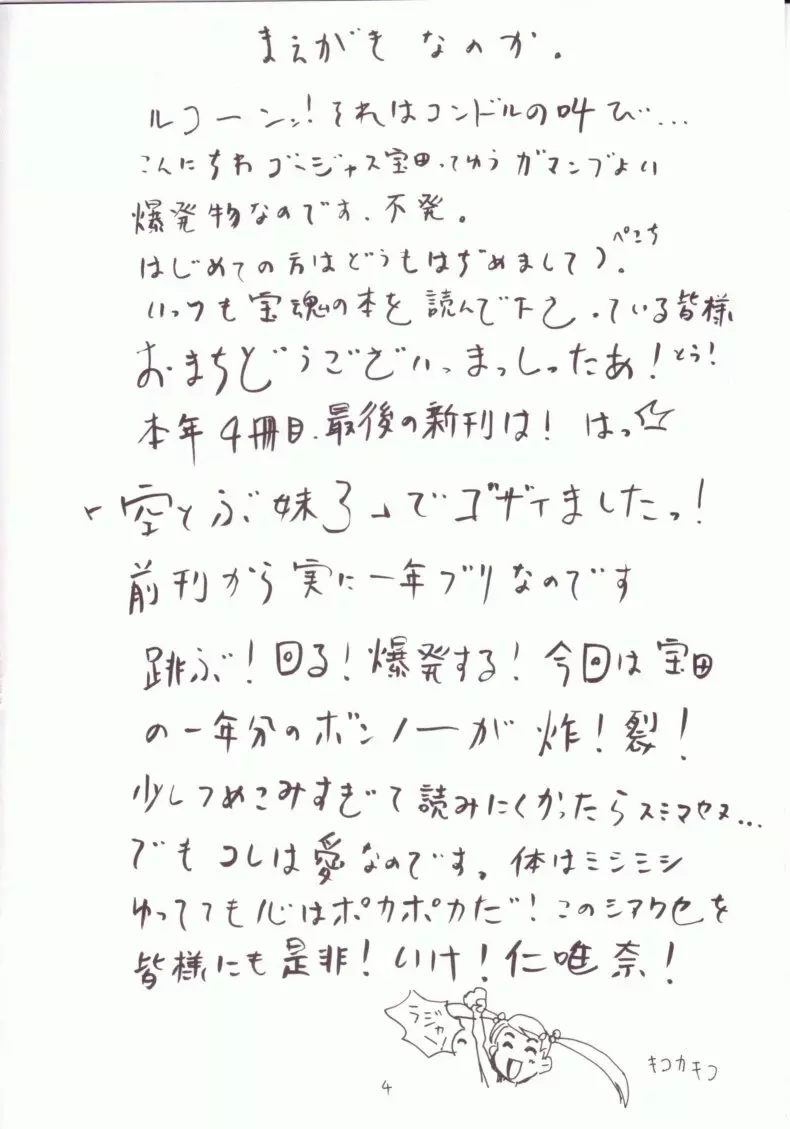 まえがきなのか。
ルコーンッ!それはコンドルの叫び…
こんにちわゴージャス宝田ってゆうガマンブよい
爆発物なのです、不発。
はじめての方はどうもはぢめまして)。ぺこち
いっつも宝魂の本を読んで下さっている皆様
おまちどうございっまっしったあ!とう!
本年4冊目、最後の新刊は!はっ☆
「空とぶ妹3」でゴザイましたっ!
前刊から実に一年ブリなのです
跳ぶ!回る!爆発する!今回は宝田
の一年分のボンノーが炸!裂!
少しつめこみすぎて読みにくかったらスミマセヌ…
でもコレは愛なのです。体はミシミシ
ゆってても心はポカポカだ!このシアワセを
皆様にも是非!いけ!仁唯奈!
ラジャー!
キコカキコ
4